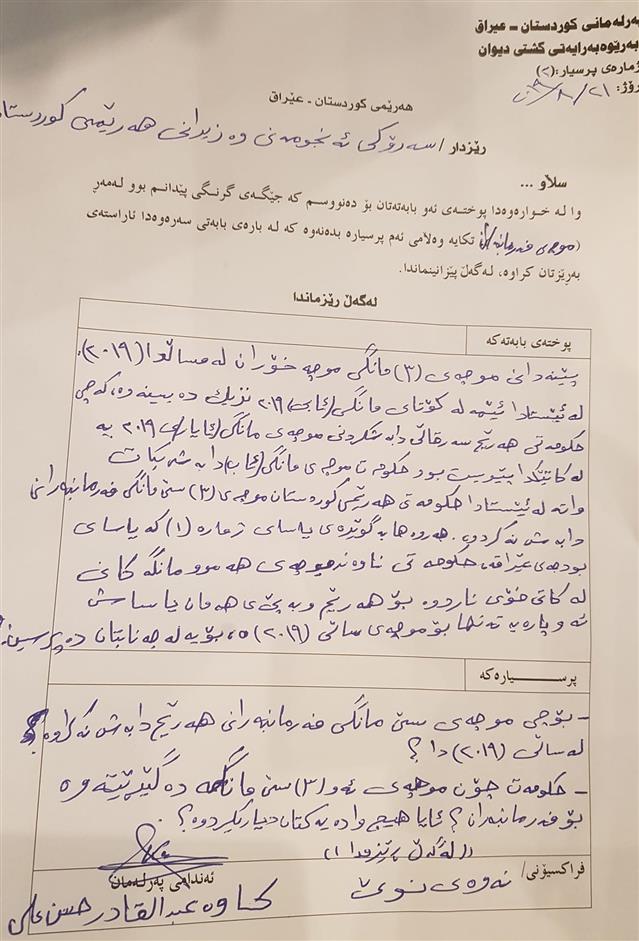 پەرلەمانی کوردستان - عیراق
بەڕێوەبەرایەتی گشتی دیوان
ژمارەی پرسیار: (٢)
ڕۆژ: ٢١/٨/
هەرێمی کوردستان - عێراق
رێزدار / سەرۆکی ئەنجومەنی وەزیرانی هەرێمی کوردستان
سلاو ...
وا لە خوارەوەدا پوختەی ئەو بابەتەتان بۆ دەنووسم کە جێگەی گرنگی پێدانم بوو لەمەڕ
(موچەی فەرمانبەران) تکایە وەلامی ئەم پرسیارە بدەنەوە کە لە بارەی بابەتی سەرەوەدا ئاراستەی
بەڕێزتان کراوە، لەگەڵ پێزانینماندا.
لەگەڵ رێزماندا
پوختەی بابەتەکە
پێنەدانی موچەی (٣) مانگی موچە خۆران لە مساڵدا (٢٠١٩).
لە ئێستادا ئێمە لە کۆتای مانگی (ئاب) ٢٠١٩ نزیک دەبینەوە، کەچی
حکومەتی هەرێم سەرقاڵی دابەشکردنی موچەی مانگی (ئایار)ی ٢٠١٩ یە
لە کاتێکدا پێویست بوو حکومەت موچەی مانگی (ئاب) دابەش بکات
واتە لە ئێستادا حکومەتی هەرێمی کوردستان موچەی (٣) سێ مانگی فەرمانبەرانی
دابەش نەکردوە. هەروەها بەگوێرەی یاسای ژمارە (١) کە یاسای
بودجەی عێراقە، حکومەتی ناوەند موچەی هەموو مانگەکانی
لە کاتی خۆی ناردوە بۆ هەرێم وبەپێی هەمان یاساش
ئەو پارەیە تەنها بۆ موچەی ساڵی (٢٠١٩)ە، بۆیە لە جەنابتان دەپرسین:
پرسیارەکە
- بۆچی موچەی سێ مانگی فەرمانبەرانی هەرێم دابەش نەکراوە
لە ساڵی (٢٠١٩) دا؟
- حکومەت چۆن موچەی ئەو (٣) سێ مانگە دەگێڕێتەوە
بۆ فەرمانبەران؟ ئایا هیچ وادەیەکتان دیاریکردوە؟
(لەگەڵ ڕێزمدا)
فراکسیۆنی/ نەوەی نوێ
ئەندامی پەرلەمان
کاوە عبدالقادر حسن علی